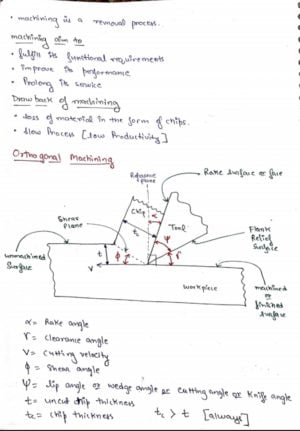 • machining is a removal process.
machining aim to
• fulfill its functional requirements
• improve its performance
• Prolong its service
Draw back of machining
• loss of material in the form of chips.
• slow Process [low Productivity]
Orthogonal Machining
Reference plane
Rake surface or face
Chip
Tool
Shear plane
Flank
Relief surface
unmachined surface
machined or finished surface
workpiece
α = Rake angle
γ = clearance angle
V = cutting velocity
ϕ = shear angle
ψ = lip angle or wedge angle or cutting angle or knife angle
t = uncut chip thickness
tc = chip thickness tc > t [always]